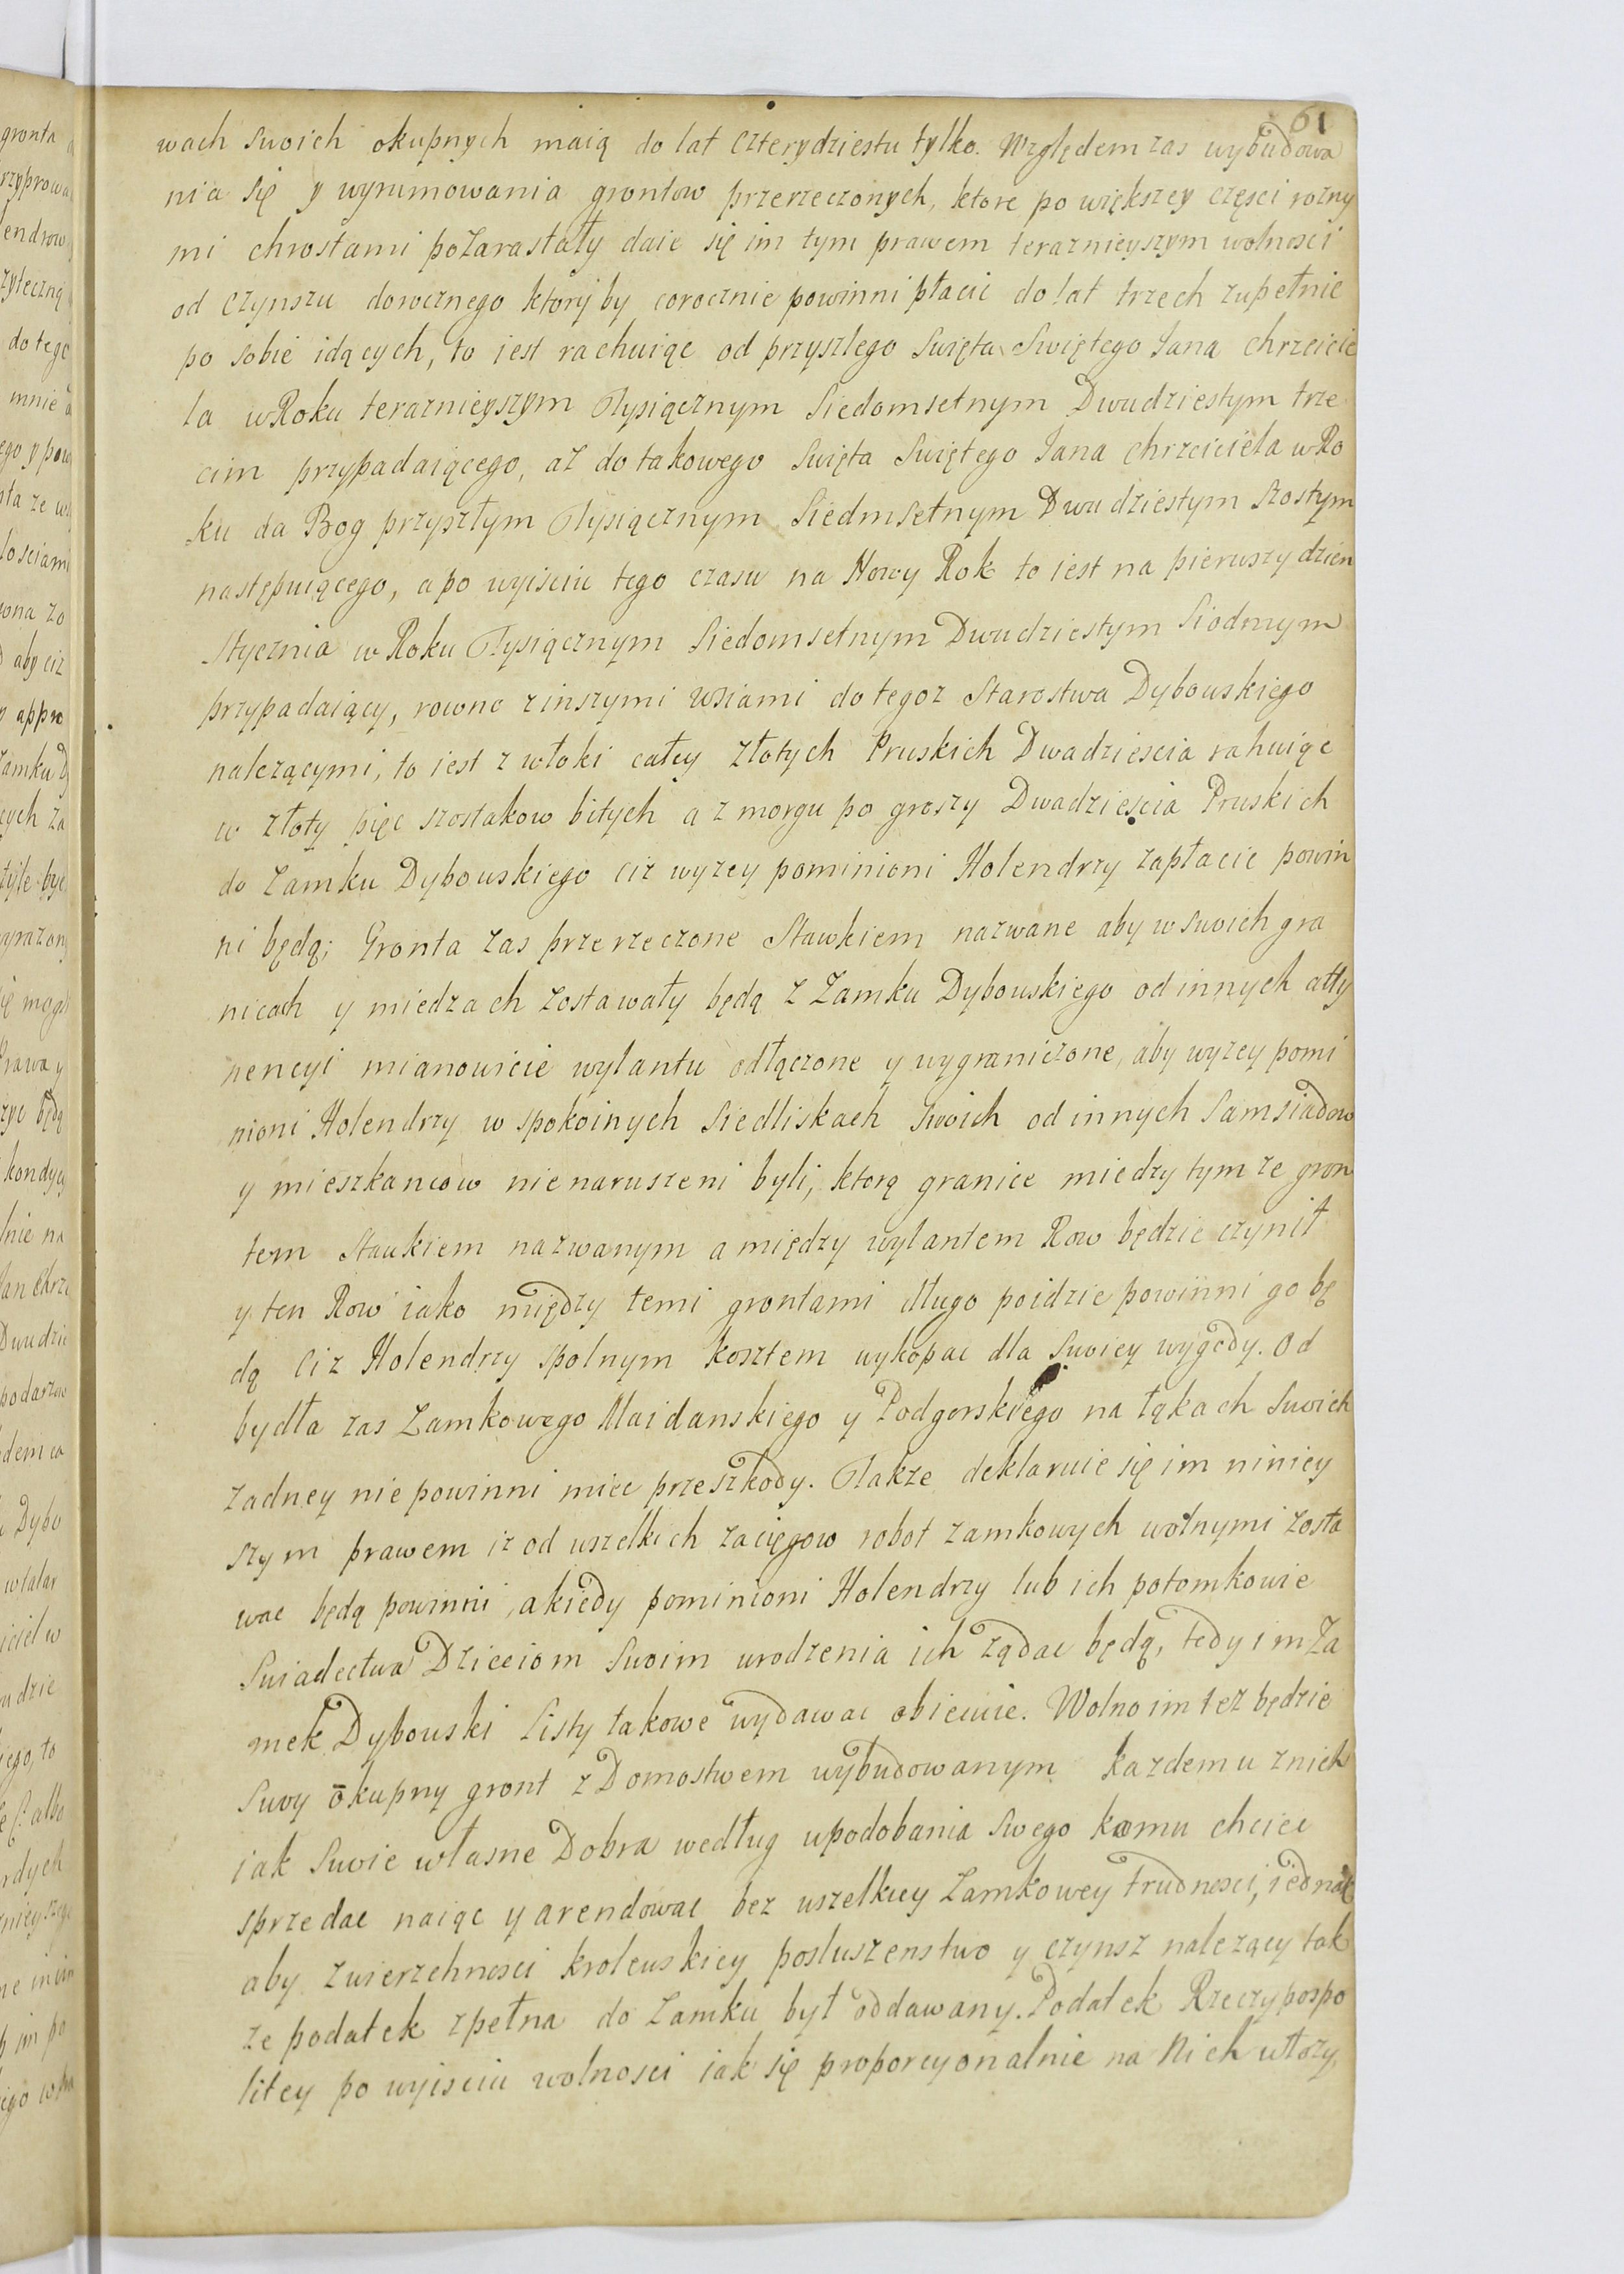 61
wach Swoich okupnych maią do lat Czterydziestu tylko. Względem zas wybudowa
nia się y wyrumowania grontow przerzeczonych, ktore po większey częsci rozny
mi chrostami pozarastały daie się im tym prawem teraznieyszym wolnosci
od Czynszu dorocznego ktory by corocznie powinni płacic do lat trzech zupełnie
po sobie idących, to iest rachuiąc od przyszlego Swięta Swiętego Jana chrzcicie
la w Roku teraznieyszym Tysiącznym Siedomsetnym Dwudziestym trze
cim przypadaiącego, az do takowego Swięta Swiętego Jana chrzciciela w Ro
ku da Bog przyszłym Tysiącznym Siedmsetnym Dwudziestym Szostym
następuiącego, a po wyisciu tego czasu na Nowy Rok to iest na pierwszy dzien
Stycznia w Roku Tysiącznym Siedomsetnym Dwudziestym Siodmym
przypadaiący, rowno z inszymi Wsiami do tegoz Starostwa Dybowskiego
nalezącymi, to iest z włoki całey Złotych Pruskich Dwadziescia rahuiąc
w złoty pięc szostakow bitych a z morgu po groszy Dwadziescia Pruskich
do Zamku Dybowskiego ciz wyzey pominioni Holendrzy zapłacic powin
ni będą; Gronta zas przerzeczone Stawkiem nazwane aby w Swoich gra
nicach y miedzach zostawały będą z Zamku Dybowskiego od innych atty
nencyi mianowicie wylantu odłączone y wygraniczone, aby wyzey pomi
nioni Holendrzy w spokoinych Siedliskach Swoich od innych Samsiadow
y mieszkancow nienaruszeni byli, ktorą granice miedzy tym ze gron
tem Stawkiem nazwanym a między wylantem Row będzie czynił
y ten Row iako między temi grontami długo poidzie powinni go bę
dą Ciz Holendrzy spolnym kosztem wykopac dla Swoiey wygody. Od
bydła zas Zamkowego Maidanskiego y Podgorskiego na łąkach Swoich
zadney nie powinni miec przeszkody. Takze deklaruie się im niniey
szym prawem iz od wszelkich zacięgow robot zamkowych wolnymi zosta
wac będą powinni, a kiedy pominioni Holendrzy lub ich potomkowie
Swiadectwa Dzieciom Swoim urodzenia ich ządac będą, tedy im Za
mek Dybowski Listy takowe wydawac obiecuie. Wolno im tez będzie
Swoy okupny gront z Domostwem wybudowanym kazdemu z nich
iak Swoie własne Dobra według upodobania Swego komu chciec
sprzedac naiąc y arendowac bez wszelkiey Zamkowey trudnosci, iednak
aby zwierzchnosci krolewskiey posluszenstwo y czynsz nalezący tak
ze podatek zpełna do Zamku był oddawany. Podatek Rzeczypospo
litey po wyisciu wolnosci iak się proporcyonalnie na Nich włozy